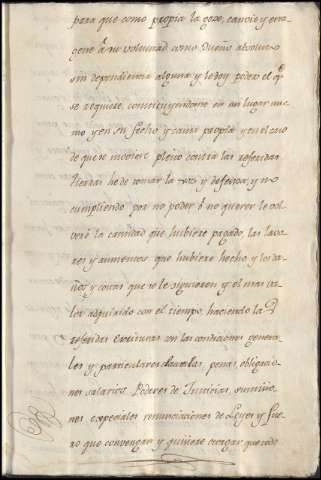 para que como propia la goze, cambie y ena
gene á su voluntad como Dueño absoluto
sin dependencia alguna y le doy poder el qe
se requiere, constituyendome en su lugar mis
mo y en su fecho, y causa propia y en el caso
de que se moviere pleito contra las referidas
tierras he de tomar la voz y defensa, y no
cumpliendo por no poder ó no querer le vol
veré la cantidad que hubiere pagado, las lavo
res y aumentos que hubiere hecho y los da
ños y costas que se le siguieren y el mas va
lor adquirido con el tiempo haciendo la
referidas Escrituras con las condiciones genera
les y particulares clausulas, penas obligacio
nes salarios Poderes de Justicias, sumisio
nes especiales renunciaciones de Leyes y fue
ro que convengan y quisiere otorgar que todo